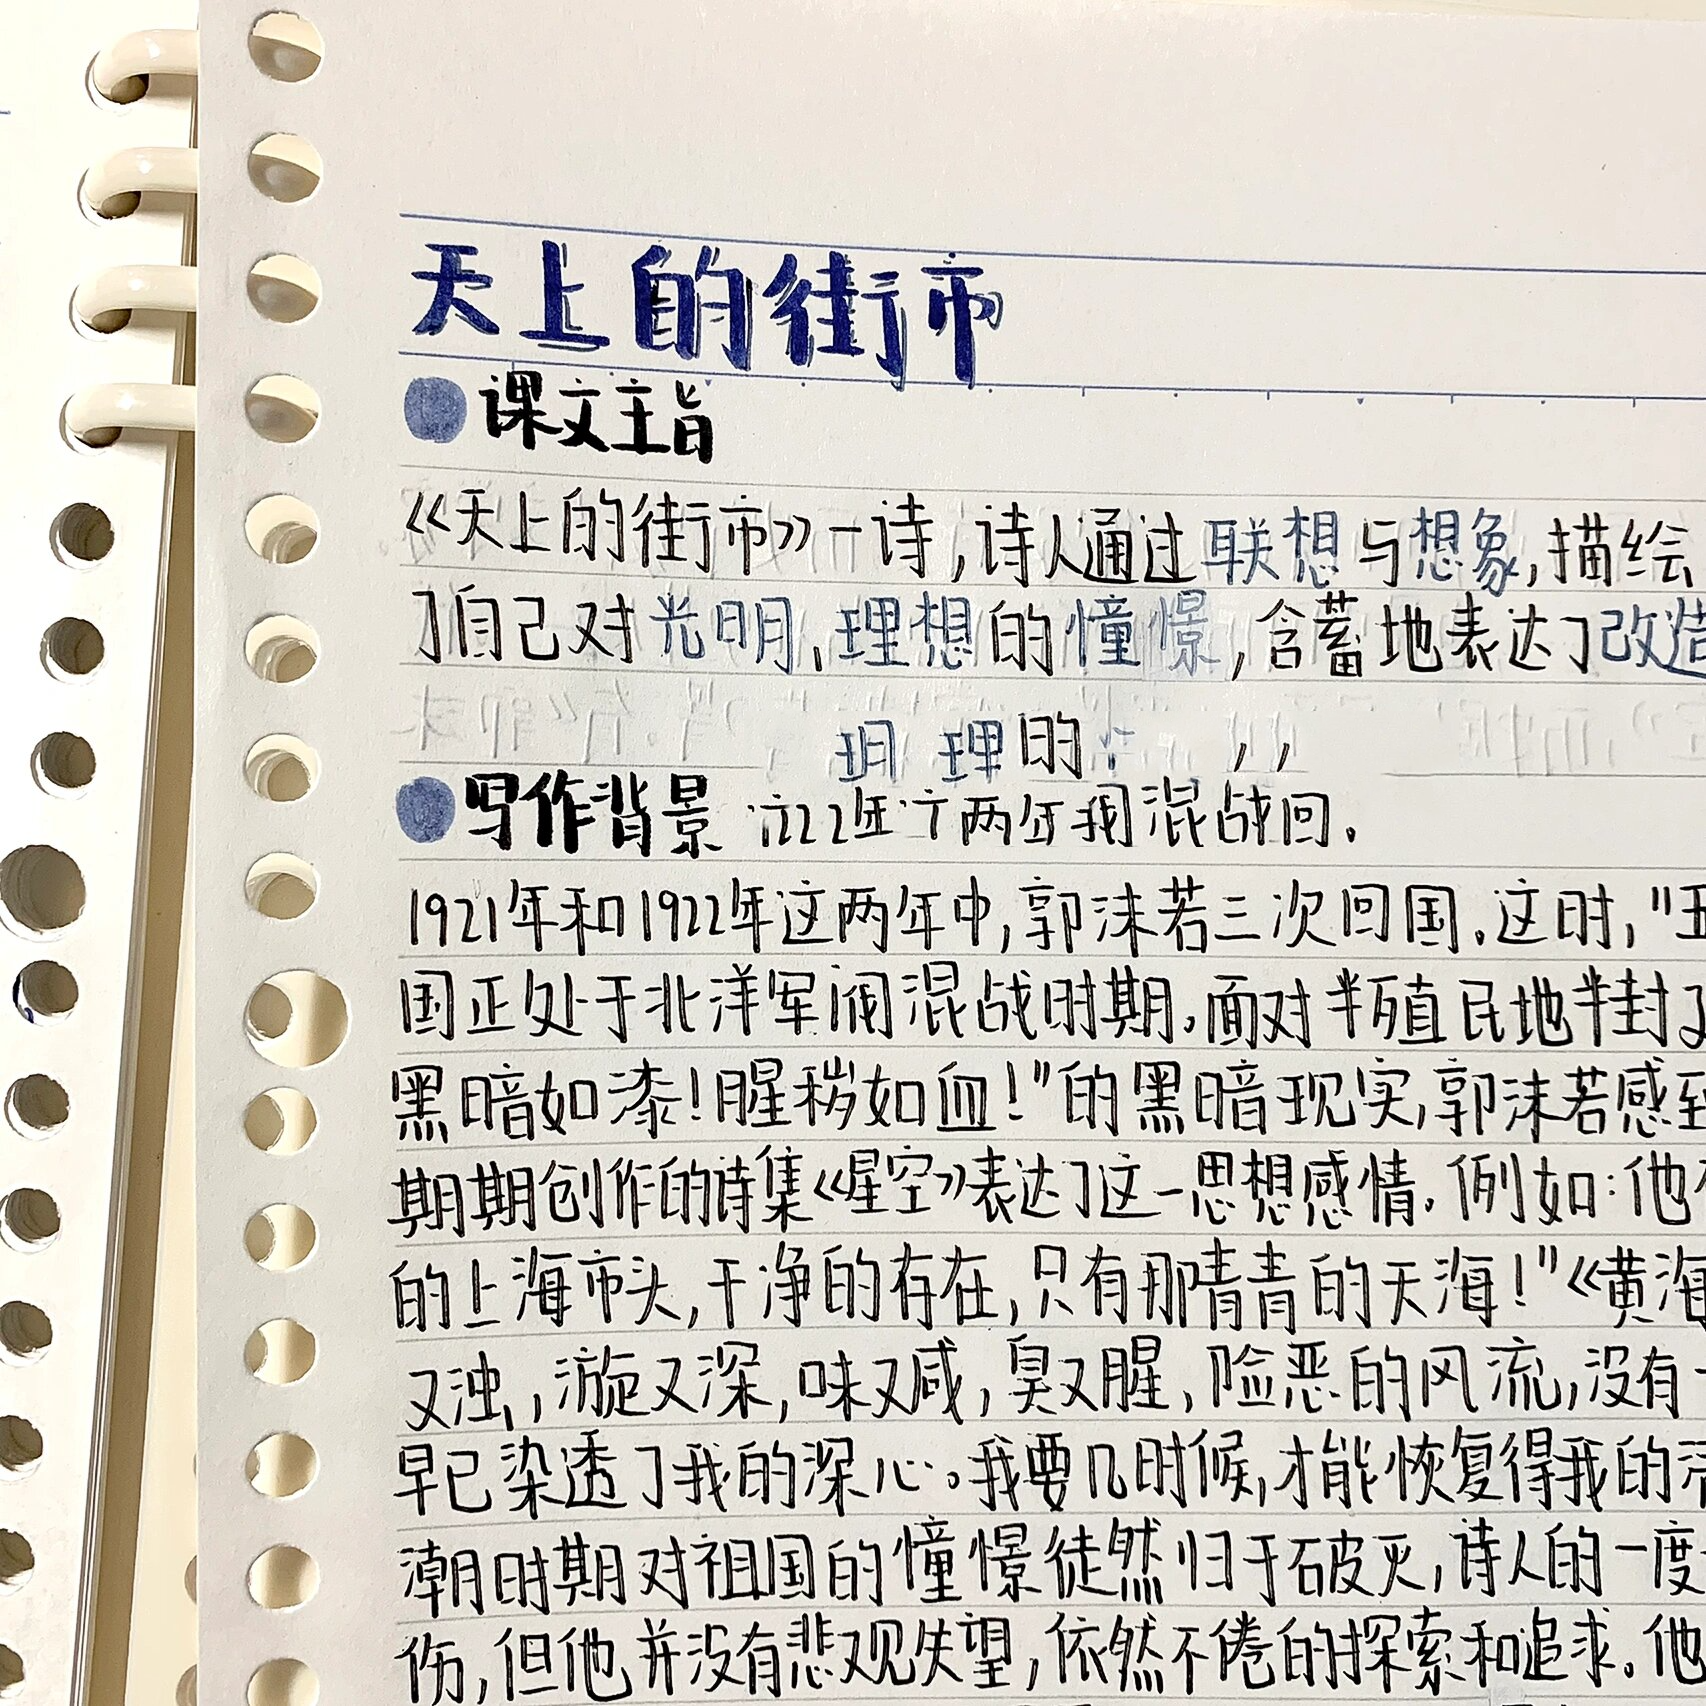 天上的街市
课文主旨
《天上的街市》一诗,诗人通过联想与想象,描绘
了自己对光明、理想的憧憬,含蓄地表达了改造
理的
写作背景 年 两年 混战回.
1921年和1922年这两年中,郭沫若三次回国.这时,"五
国正处于北洋军阀混战时期.面对半殖民地半封
黑暗如漆!腥秽如血!"的黑暗现实,郭沫若感到
期期创作的诗集《星空》表达了这一思想感情.例如:他
的上海市头,干净的存在,只有那青青的天海!"《黄海
又浊,,漩又深,味又咸,臭又腥,险恶的风流,没有
早已染透了我的深心。我要几时候,才能恢复得我的清
潮时期对祖国的憧憬徒然归于破灭,诗人的一度
伤,但他并没有悲观失望,依然不倦的探索和追求。他